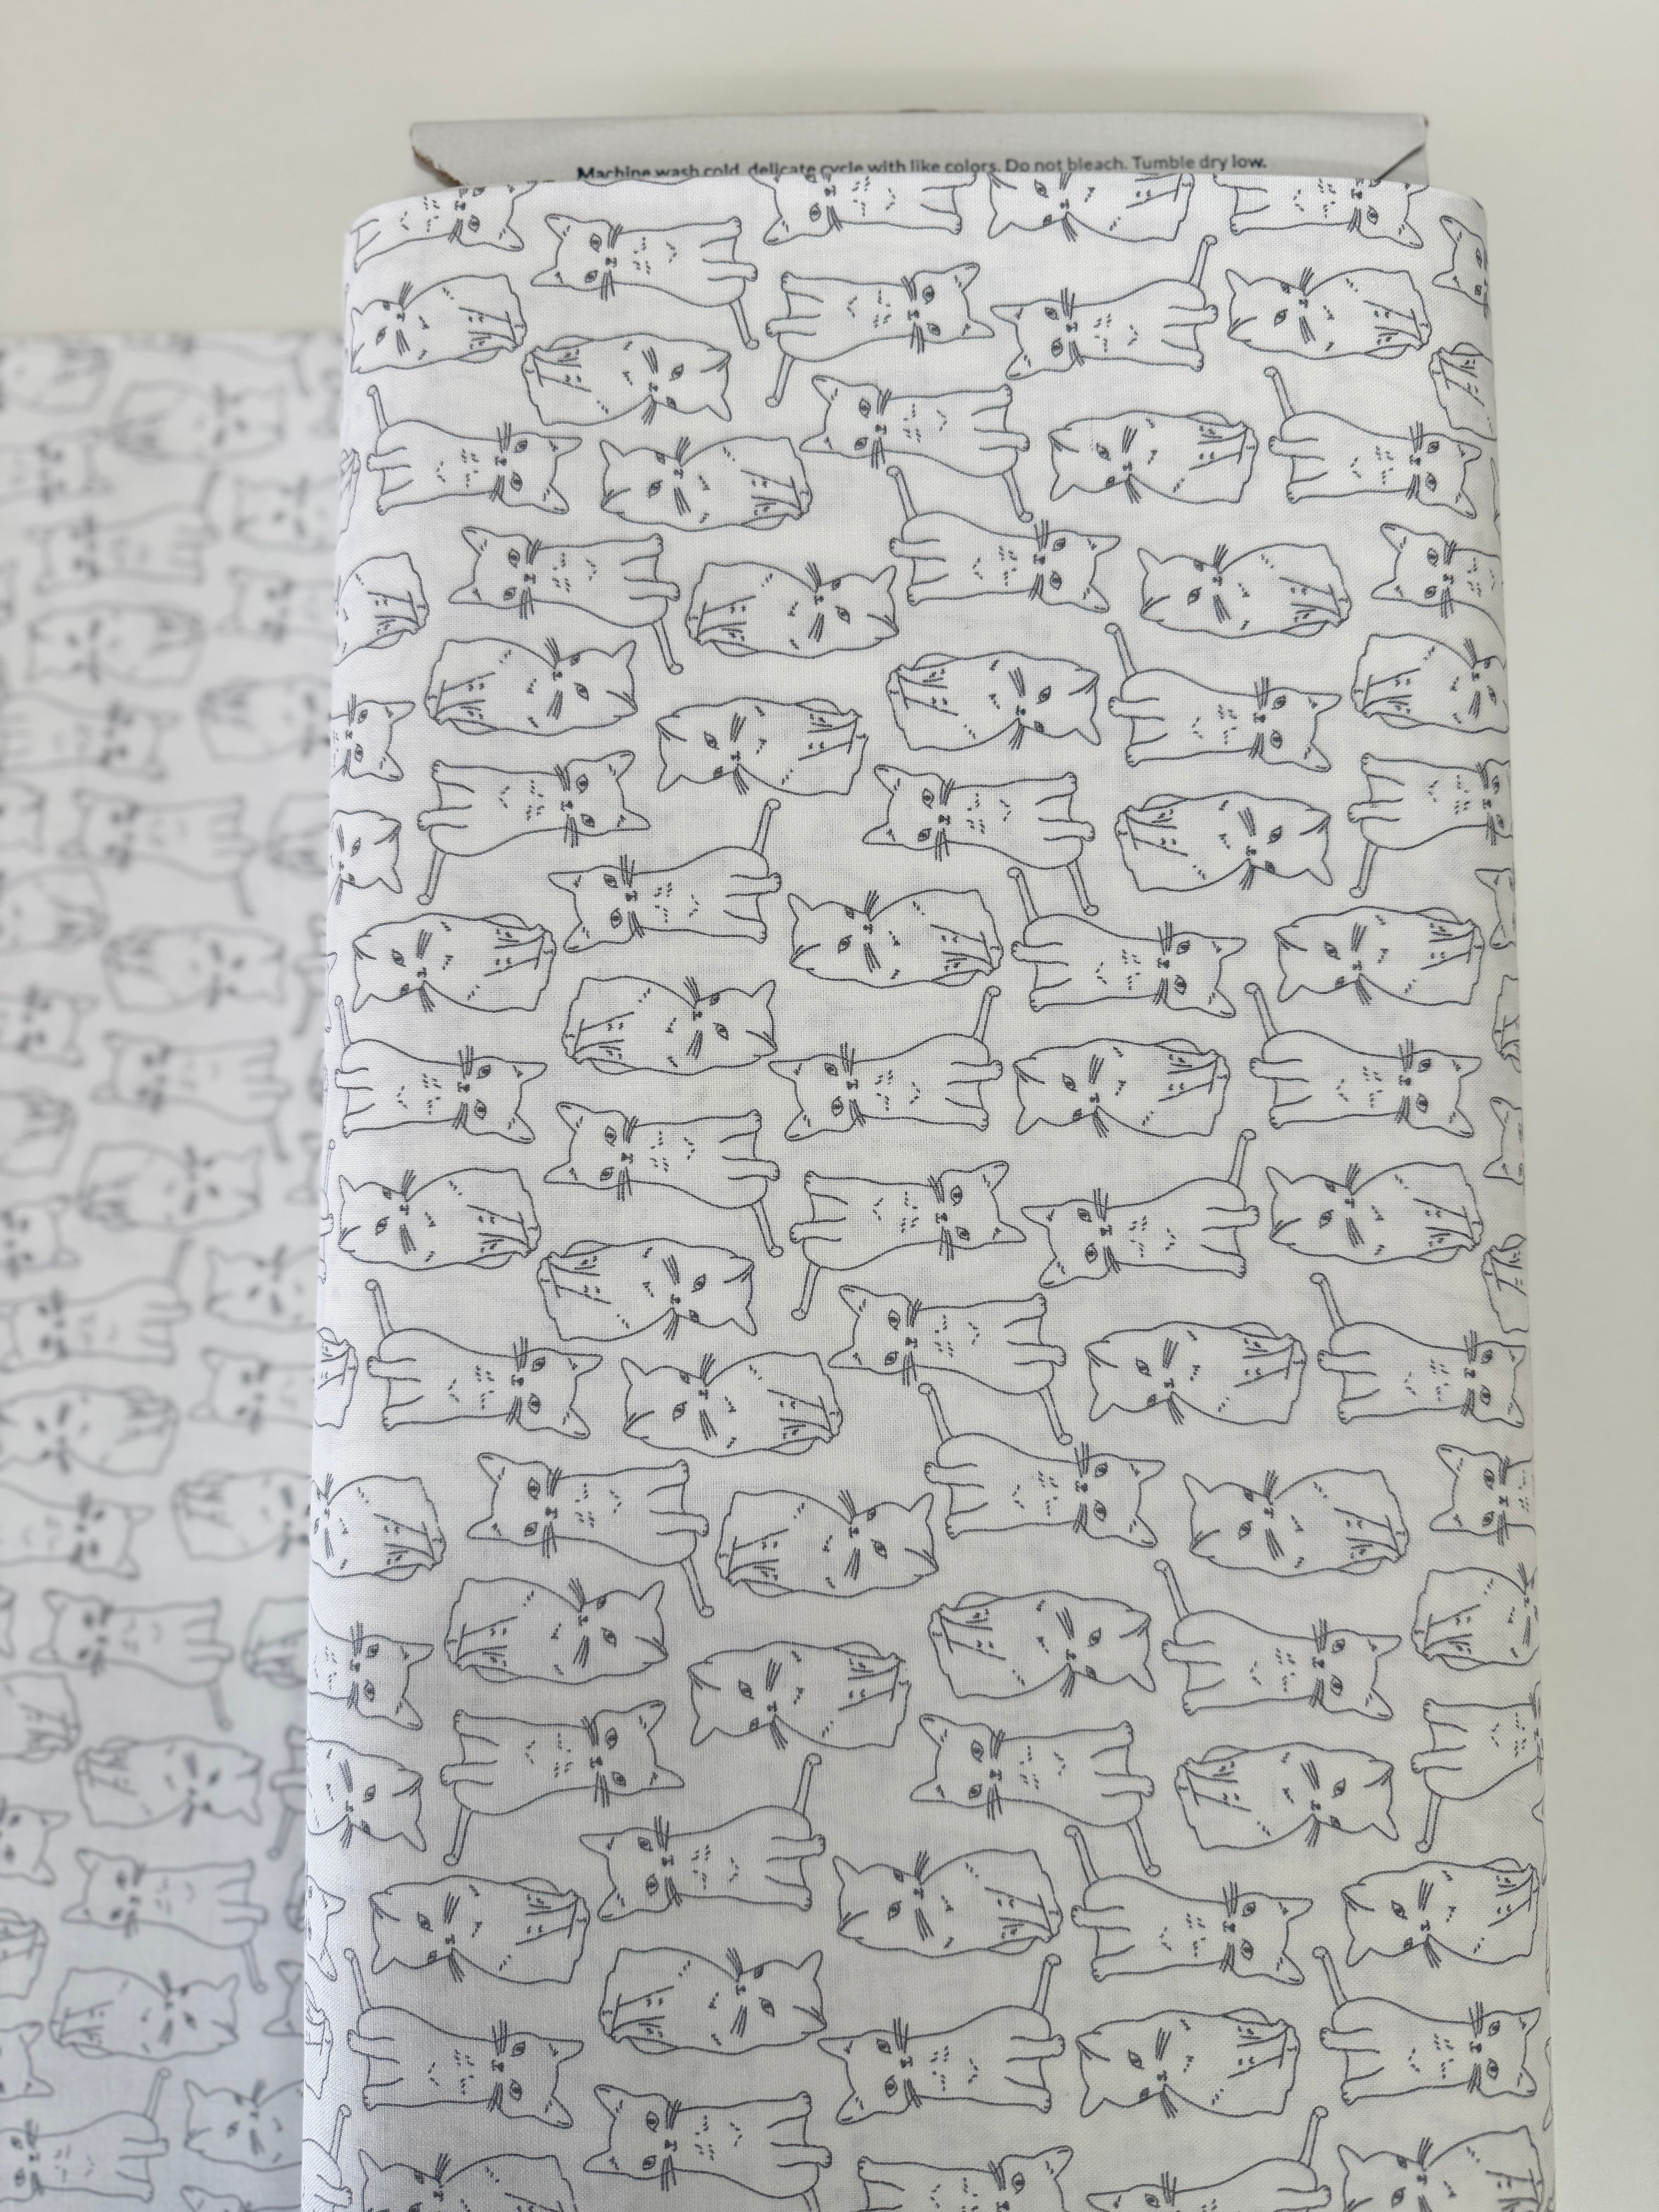 Machine wash cold, delicate cycle with like colors. Do not bleach. Tumble dry low.